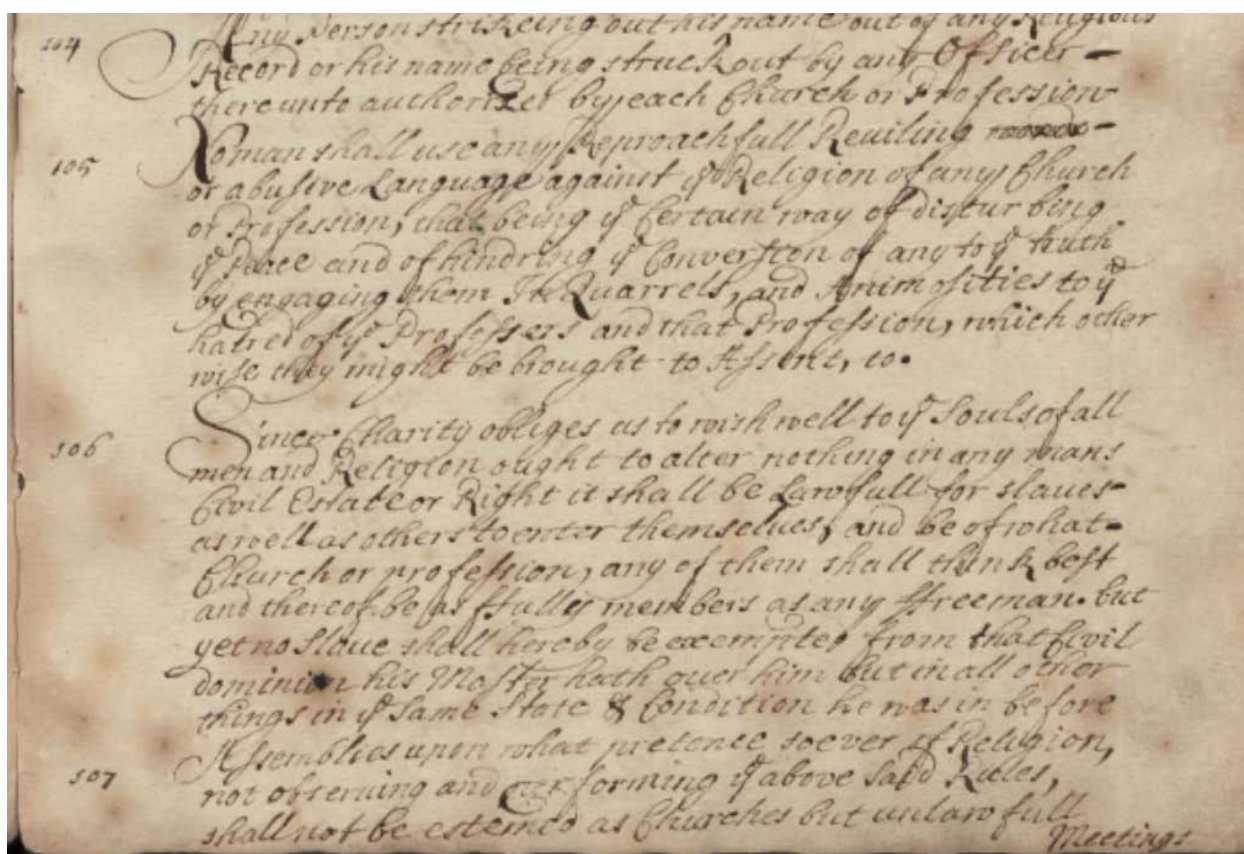 104 Any person strikeing out his name out of any Religious
Record or his name being struck out by any Officer -
thereunto authorized by each Church or Profession
105 Noman shall use any Reproachfull Reuiling
or abusive Language against ye Religion of any Church
or Profession, that being ye Certain way of disturbing
ye Peace and of hindring ye Conversion of any to ye truth
by engaging them In Quarrels, and Animosities to ye
hatred of ye Professers and that Profession, which other
wise they might be brought to Assent, to.
106 Since Charity obliges us to wish well to ye Souls of all
men and Religion ought to alter nothing in any mans
Civil Estate or Right it shall be Lawfull for slaues-
as well as others to enter themselues, and be of what-
Church or profession, any of them shall think best
and thereof be as ffully members as any ffreeman. but
yet no Slaue shall hereby be exempted from that Civil
dominion his Master hath ouer him but in all other
things in ye Same State & Condition he was in before
107 Assemblies upon what pretence soever of Religion,
not obseruing and performing ye aboue Said Rules,
shall not be estemed as Churches but unlawfull
Meetings